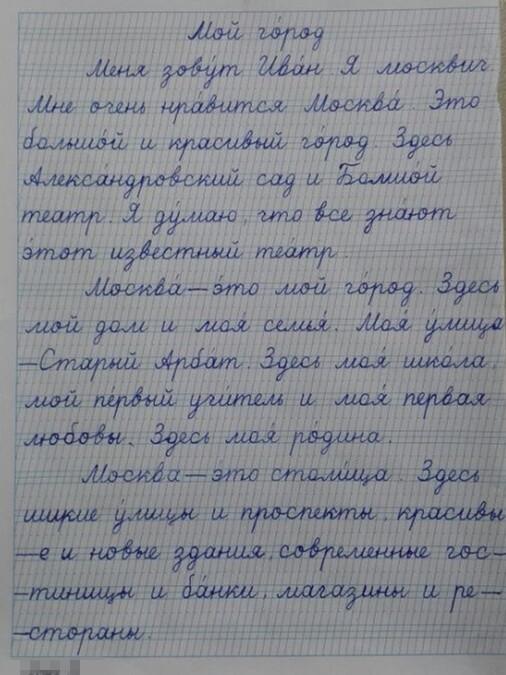 Мой го́род
Меня зову́т Ива́н. Я москвич.
Мне очень нра́вится Москва́. Это
большо́й и красивый го́род. Здесь
Алекса́ндровский сад и Большо́й
театр. Я ду́маю, что все зна́ют
э́тот известный театр.
Москва́ — э́то мой го́род. Здесь
мой дом и моя́ семья́. Моя́ у́лица
— Старый Арба́т. Здесь моя́ шко́ла,
мой пе́рвый учи́тель и моя́ первая
любовы. Здесь моя́ ро́дина.
Москва — э́то столи́ца. Здесь
шикие у́лицы и проспекты, красивы
—е и новые здания, современные гос—
—тиницы и ба́нки, магазины и ре—
—стораны.